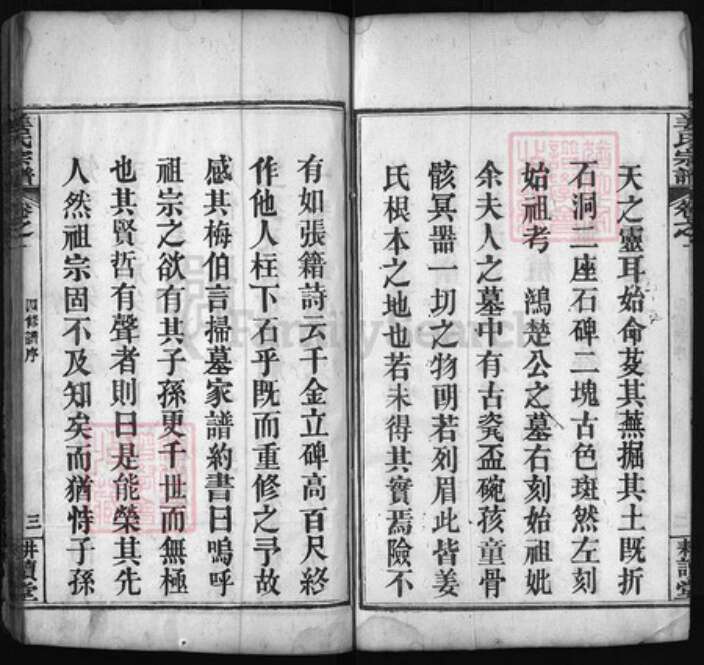 天之靈耳始命芟其蕪掘其土既折
石洞二座石碑二塊古色斑然左刻
始祖考 鴻楚公之墓右刻始祖妣
余夫人之墓中有古瓷盃碗孩童骨
骸冥器一切之物明若列眉此皆姜
氏根本之地也若未得其實焉險不
姜氏宗譜
卷之一
耕讀堂
有如張籍詩云千金立碑高百尺終
作他人柱下石乎既而重修之予故
感其梅伯言掃墓家譜約書曰嗚呼
祖宗之欲有其子孫更千世而無極
也其賢哲有聲者則曰是能榮其先
人然祖宗固不及知矣而猶恃子孫
姜氏宗譜
卷之一
四修譜序
三
耕讀堂
FamilySearch